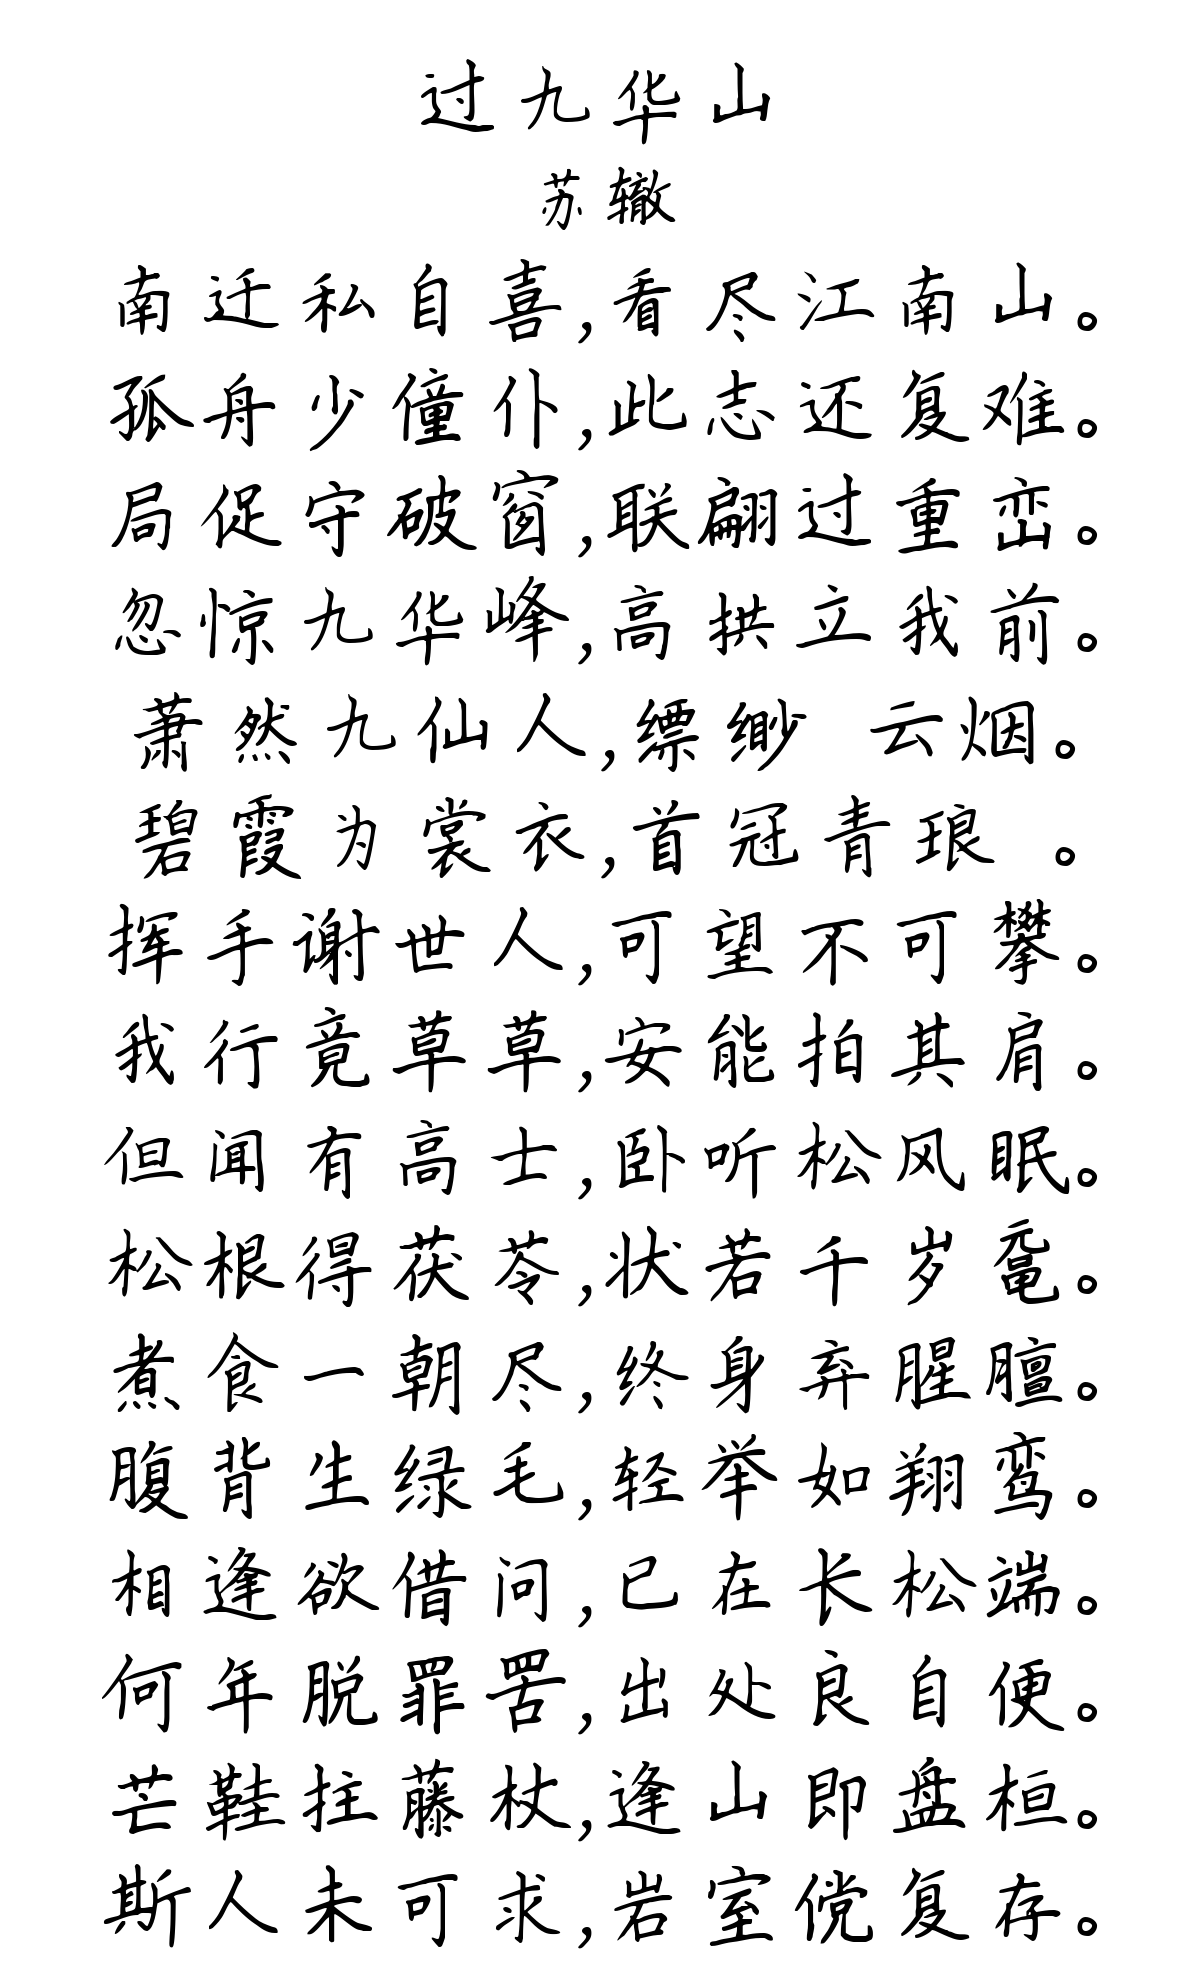 过九华山
苏辙
南迁私自喜,看尽江南山。
孤舟少僮仆,此志还复难。
局促守破窗,联翩过重峦。
忽惊九华峰,高拱立我前。
萧然九仙人,缥缈 云烟。
碧霞为裳衣,首冠青琅 。
挥手谢世人,可望不可攀。
我行竟草草,安能拍其肩。
但闻有高士,卧听松风眠。
松根得茯苓,状若千岁鼋。
煮食一朝尽,终身弃腥膻。
腹背生绿毛,轻举如翔鸾。
相逢欲借问,已在长松端。
何年脱罪罟,出处良自便。
芒鞋拄藤杖,逢山即盘桓。
斯人未可求,岩室傥复存。